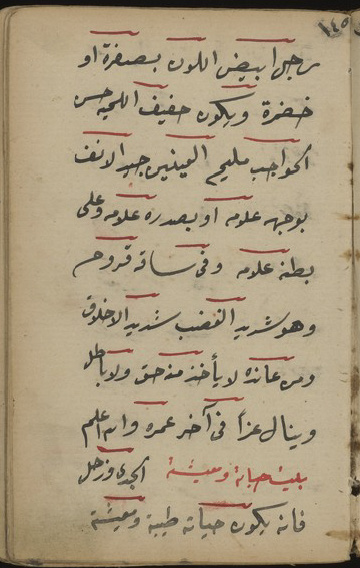 ١٤٥
رجل ابيض اللون بصفرة او
خضرة ويكون خفيف اللحيه حسن
الحواجب مليح العينين جيد الانف
بوجهه علامه او بصدره علامه وعلى
بطنه علامه وفى ساقه قروح
وهو شديد الغضب شديد الاخلاق
ومن عانده لا يأخذ منه حق ولا باطل
وينال عزا فى آخر عمره والله اعلم
بليت حياته ومعيشة الجدى وزحل
فانه يكون حياته طيبة ومعيشة